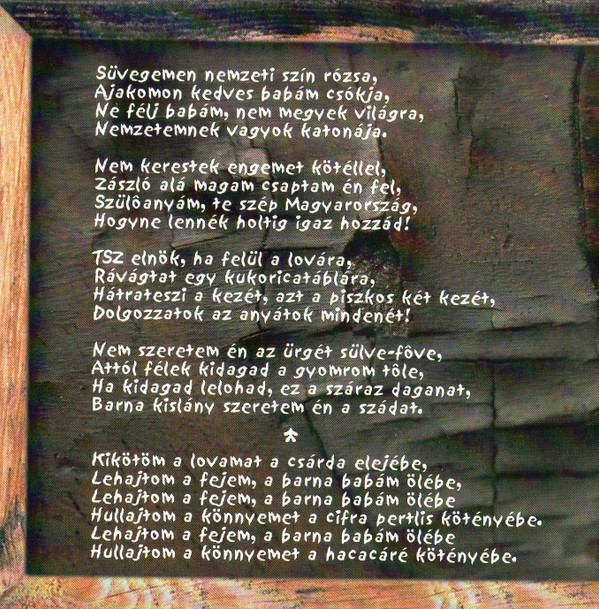 Süvegemen nemzeti szín rózsa,
Ajakomon kedves babám csókja,
Ne félj babám, nem megyek világra,
Nemzetemnek vagyok katonája.
Nem kerestek engemet kötéllel,
Zászló alá magam csaptam én fel,
Szülôanyám, te szép Magyarország,
Hogyne lennék holtig igaz hozzád!
TSZ elnök, ha felül a lovára,
Rávágtat egy kukoricatáblára,
Hátrateszi a kezét, azt a piszkos két kezét,
Dolgozzatok az anyátok mindenét!
Nem szeretem én az ürgét sülve-fôve,
Attól félek kidagad a gyomrom tôle,
Ha kidagad lelohad, ez a száraz daganat,
Barna kislány szeretem én a szádat.
Kikötöm a lovamat a csárda elejébe,
Lehajtom a fejem, a barna babám ölébe,
Lehajtom a fejem, a barna babám ölébe
Hullajtom a könnyemet a cifra pertlis kötényébe.
Lehajtom a fejem, a barna babám ölébe
Hullajtom a könnyemet a hacacáré kötényébe.